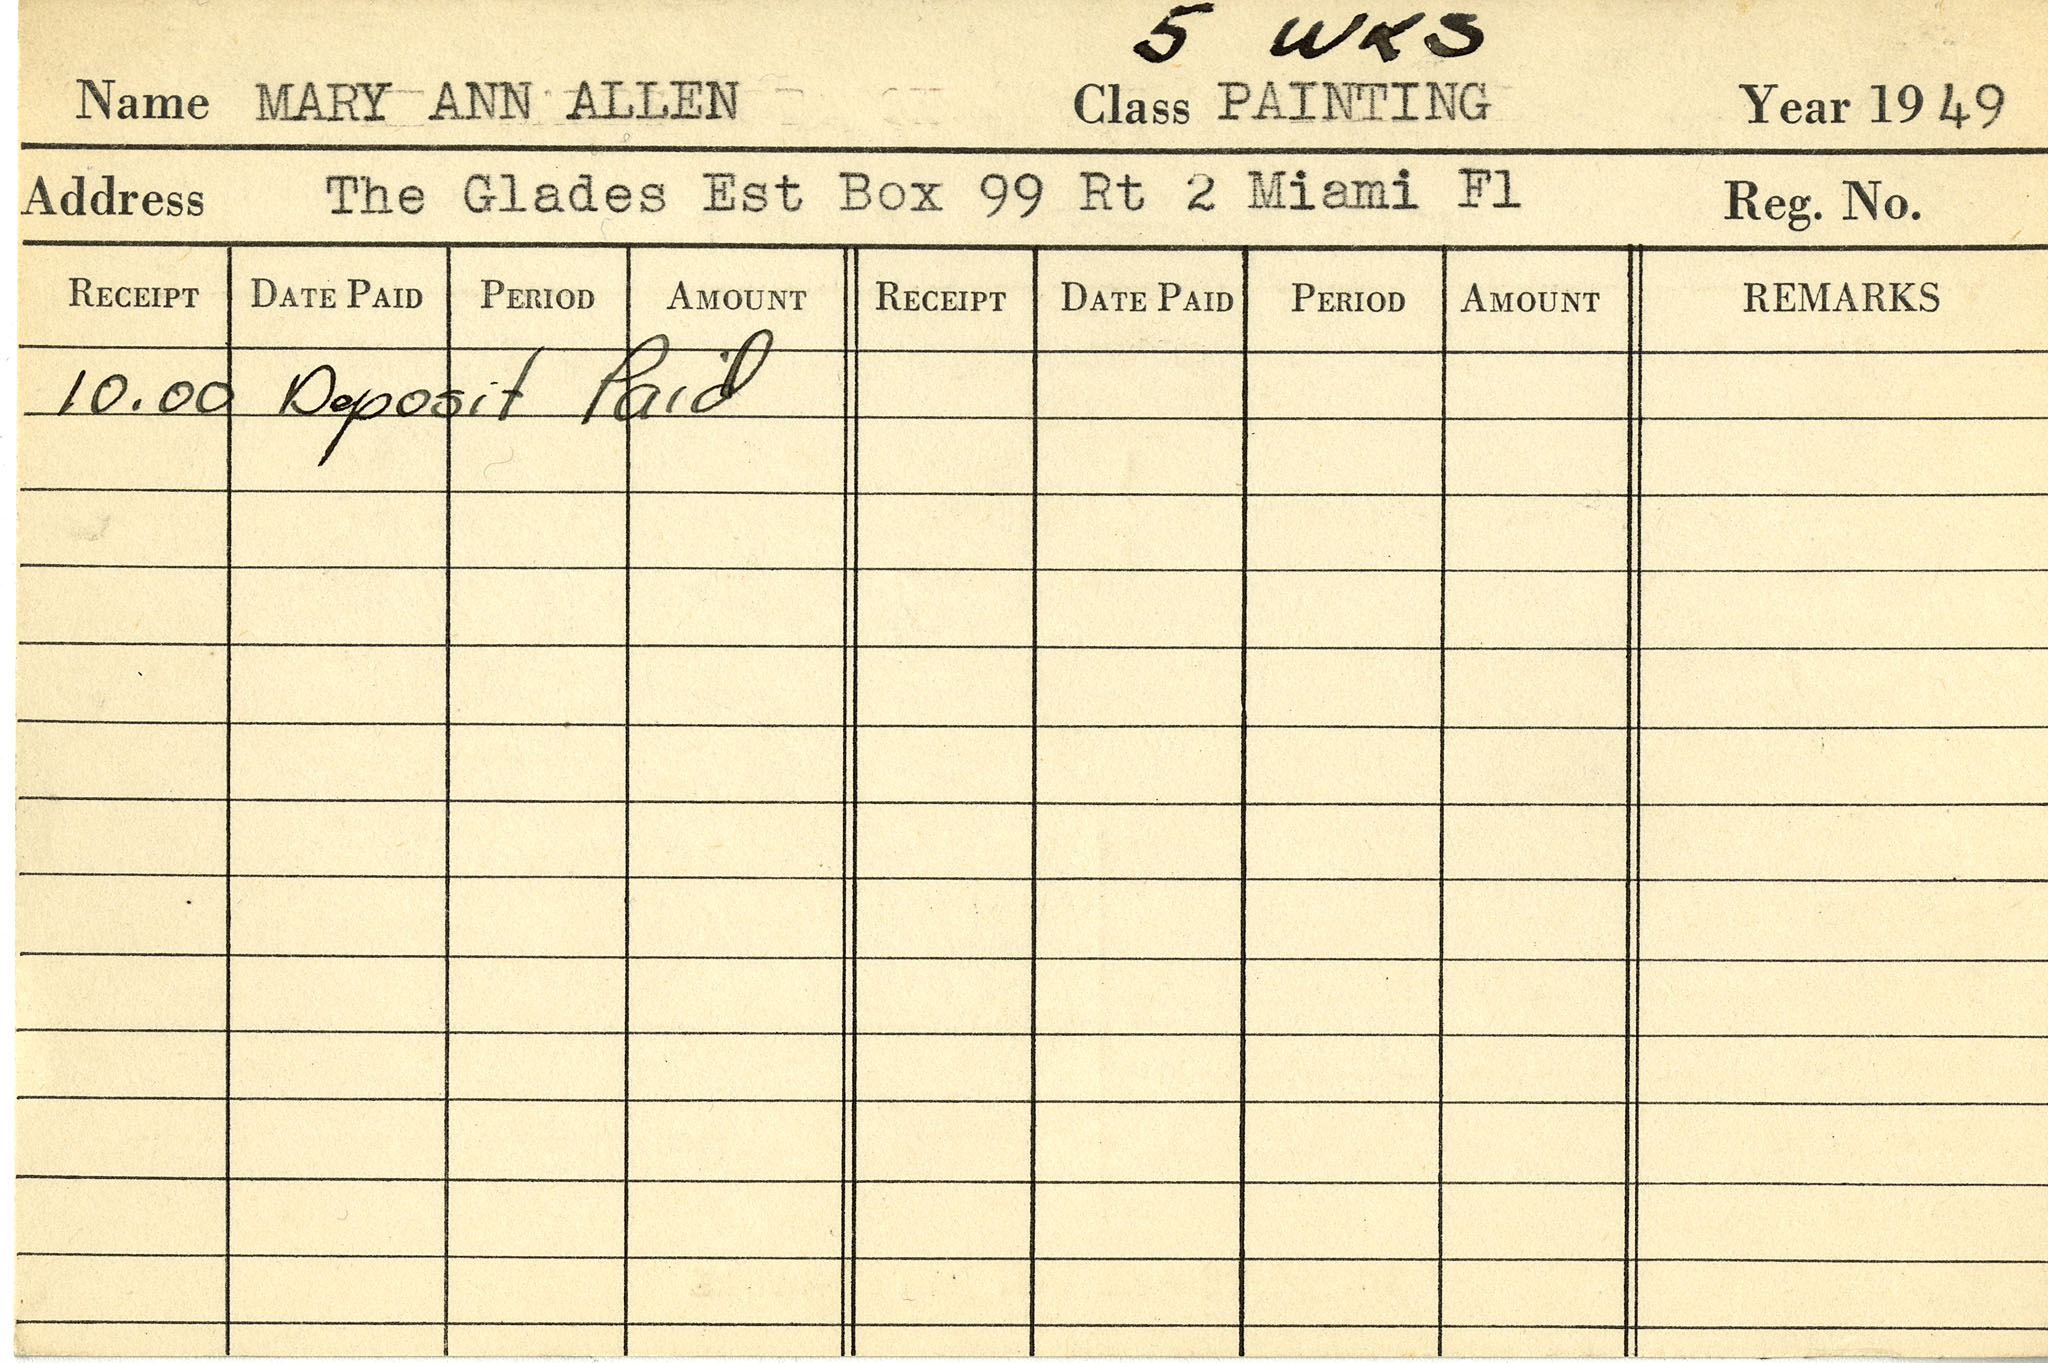 5 WKS
Name MARY ANN ALLEN Class PAINTING Year 1949
Address The Glades Est Box 99 Rt 2 Miami Fl Reg. No.
RECEIPT DATE PAID PERIOD AMOUNT RECEIPT DATE PAID PERIOD AMOUNT REMARKS
10.00 Deposit Paid